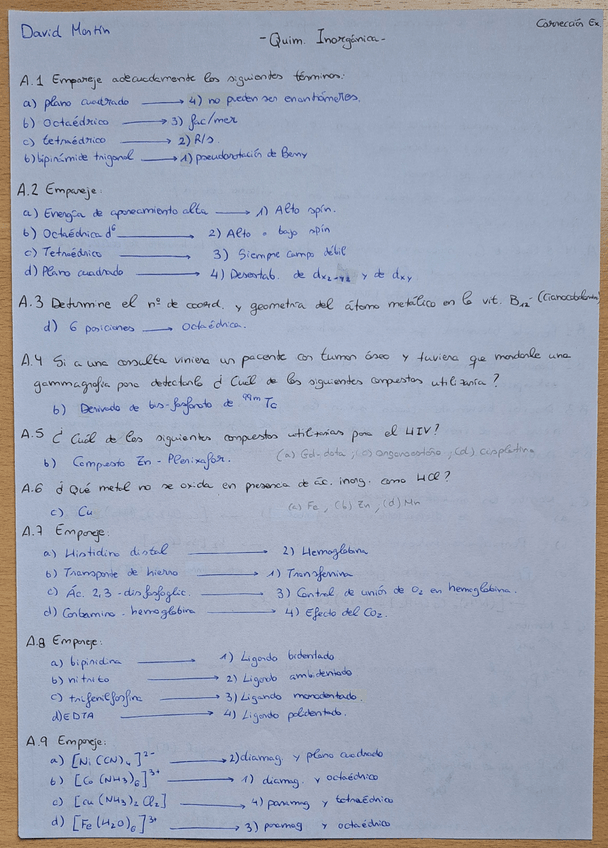 David Martín
Corrección Ex.
- Quim. Inorgánica -
A.1 Empareje adecuadamente los siguientes términos:
a) plano cuadrado → 4) no pueden ser enantiómeros.
b) Octaédrico → 3) fac/mer
c) tetraédrico → 2) R/S
b) bipirámide trigonal → 1) pseudorotación de Berry
A.2 Empareje:
a) Energía de apareamiento alta → 1) Alto spin.
b) Octaédrica d⁶ → 2) Alto o bajo spin
c) Tetraédrico → 3) Siempre campo débil
d) Plano cuadrado → 4) Desestab. de dx²-y² y de dxy
A.3 Determine el nº de coord. y geometría del átomo metálico en la vit. B₁₂ (Cianocobalamina)
d) 6 posiciones → Octaédrica.
A.4 Si a una consulta viniera un paciente con tumor óseo y tuviera que mandarle una
gammagrafía para detectarlo ¿Cuál de los siguientes compuestos utilizaría?
b) Derivado de bis-fosfonato de ⁹⁹ᵐTc
A.5 ¿Cuál de los siguientes compuestos utilizarías para el HIV?
b) Compuesto Zn - Plerixafor. (a) Gd-dota, (c) , (d) cisplatino
A.6 ¿Qué metal no se oxida en presencia de ác. inorg. como HCl?
c) Cu (a) Fe, (b) Zn, (d) Mn
A.7 Empareje:
a) Histidina distal → 2) Hemoglobina
b) Transporte de hierro → 1) Transferrina
c) Ác. 2,3-disfosfoglic. → 3) Control de unión de O₂ en hemoglobina.
d) Carbamino-hemoglobina → 4) Efecto del CO₂.
A.8 Empareje:
a) bipiridina → 1) Ligando bidentado
b) nitrito → 2) Ligando ambidentado
c) trifenilfosfina → 3) Ligando monodentado.
d) EDTA → 4) Ligando polidentado.
A.9 Empareje:
a) [Ni(CN)₄]²⁻ → 2) diamag. y plano cuadrado
b) [Co(NH₃)₆]³⁺ → 1) diamag. y octaédrico
c) [Cu(NH₃)₂Cl₂] → 4) paramag y tetraédrico
d) [Fe(H₂O)₆]³⁺ → 3) paramag y octaédrico